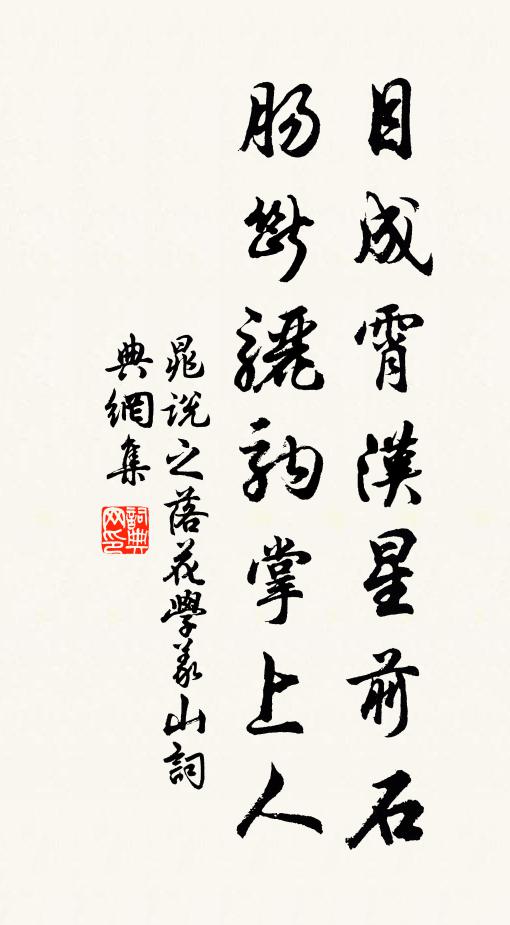 目成霄漢星前石
腸斷驪駒掌上人
晁說之落花學義山詞
典網集
詞典
网印